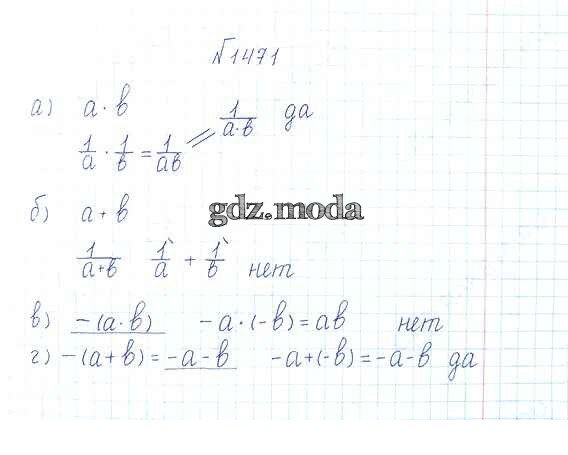 №1471
а) a · b  1/(a·b)  да
1/a · 1/b = 1/ab
б) a + b
gdz.moda
1/(a+b)  1/a + 1/b  нет
в) -(a · b)  -a · (-b) = ab  нет
г) -(a + b) = -a - b  -a+(-b) = -a-b  да